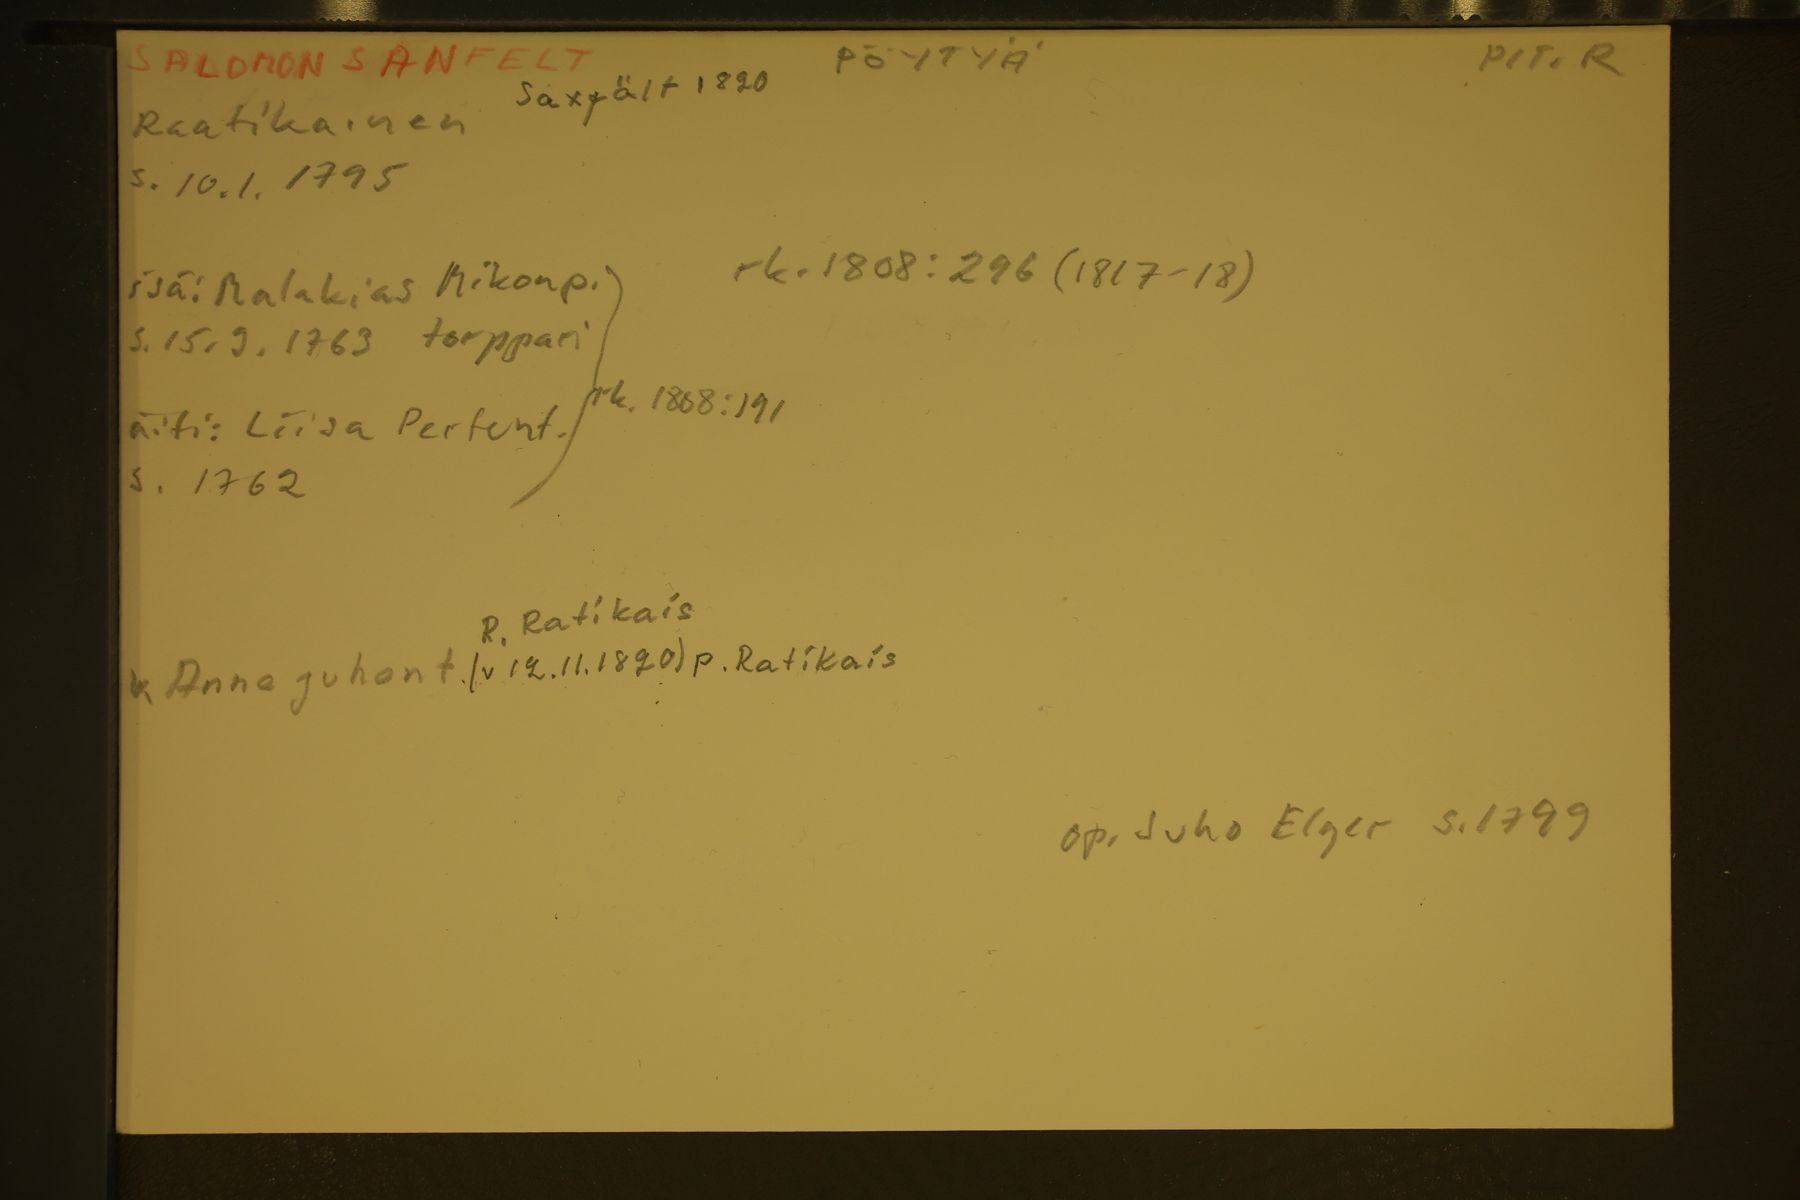 SALOMON SANFELT PÖYTYÄ PIT. R
Saxfält 1820
Raatikainen
s. 10.1. 1795
isä: Malakias Mikonp. rk. 1808: 296 (1817-18)
s. 15.9. 1763 torppari
rk. 1808: 191
äiti: Liisa Pertunt.
s. 1762
R. Ratikais
v. Anna Juhont. (v 12.11.1820) p. Ratikais
op. Juho Elger s. 1799